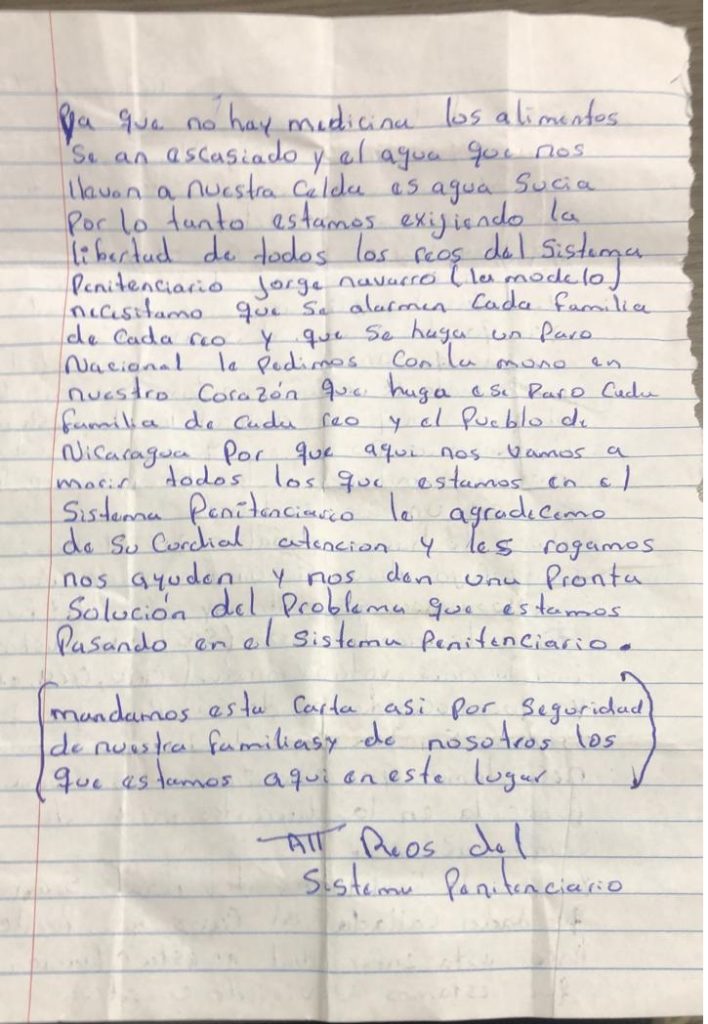 Ya que no hay medicina los alimentos
Se an escasiado y el agua que nos
llevan a nuestra Celda es agua Sucia
Por lo tanto estamos exijiendo la
libertad de todos los reos del Sistema
Penitenciario Jorge navarro (la modelo)
necesitamo que se alarmen Cada familia
de Cada reo y que se haga un Paro
Nacional le Pedimos Con la mono en
nuestro Corazón que haga ese Paro Cada
familia de Cada reo y el Pueblo de
Nicaragua Por que aqui nos vamos a
morir todos los que estamos en el
Sistema Penitenciario le agradecemo
de Su Cordial atencion y les rogamos
nos ayuden y nos den una Pronta
Solución del Problema que estamos
Pasando en el Sistema Penitenciario.
(mandamos esta Carta asi Por Seguridad
de nuestra familias y de nosotros los
que estamos aqui en este lugar)
ATT Reos del
Sistema Penitenciario